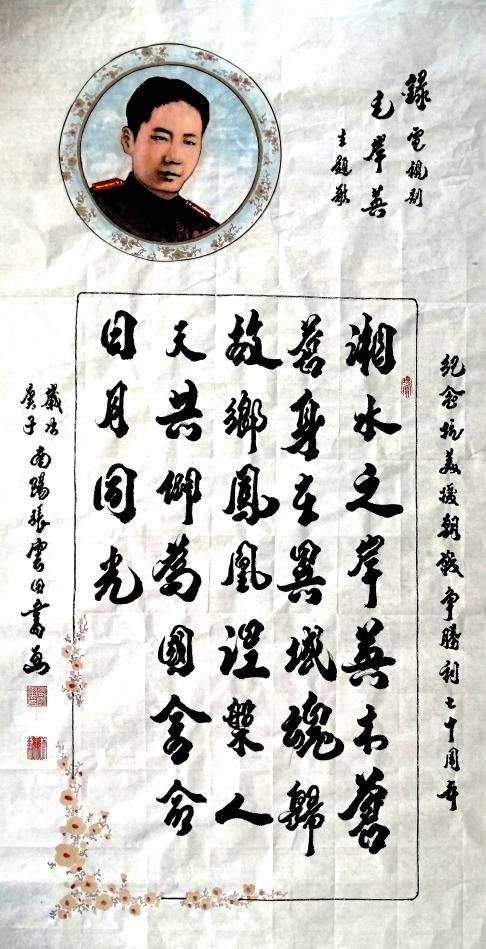 錄電視劇
毛岸英
主題歌
紀念抗美援朝戰爭勝利七十周年
湘水之岸英木蒼
蒼身在異域魂歸
故鄉鳳凰涅槃人
天共仰為國舍命
日月同光
歲次
庚子
南陽張雲田書畫